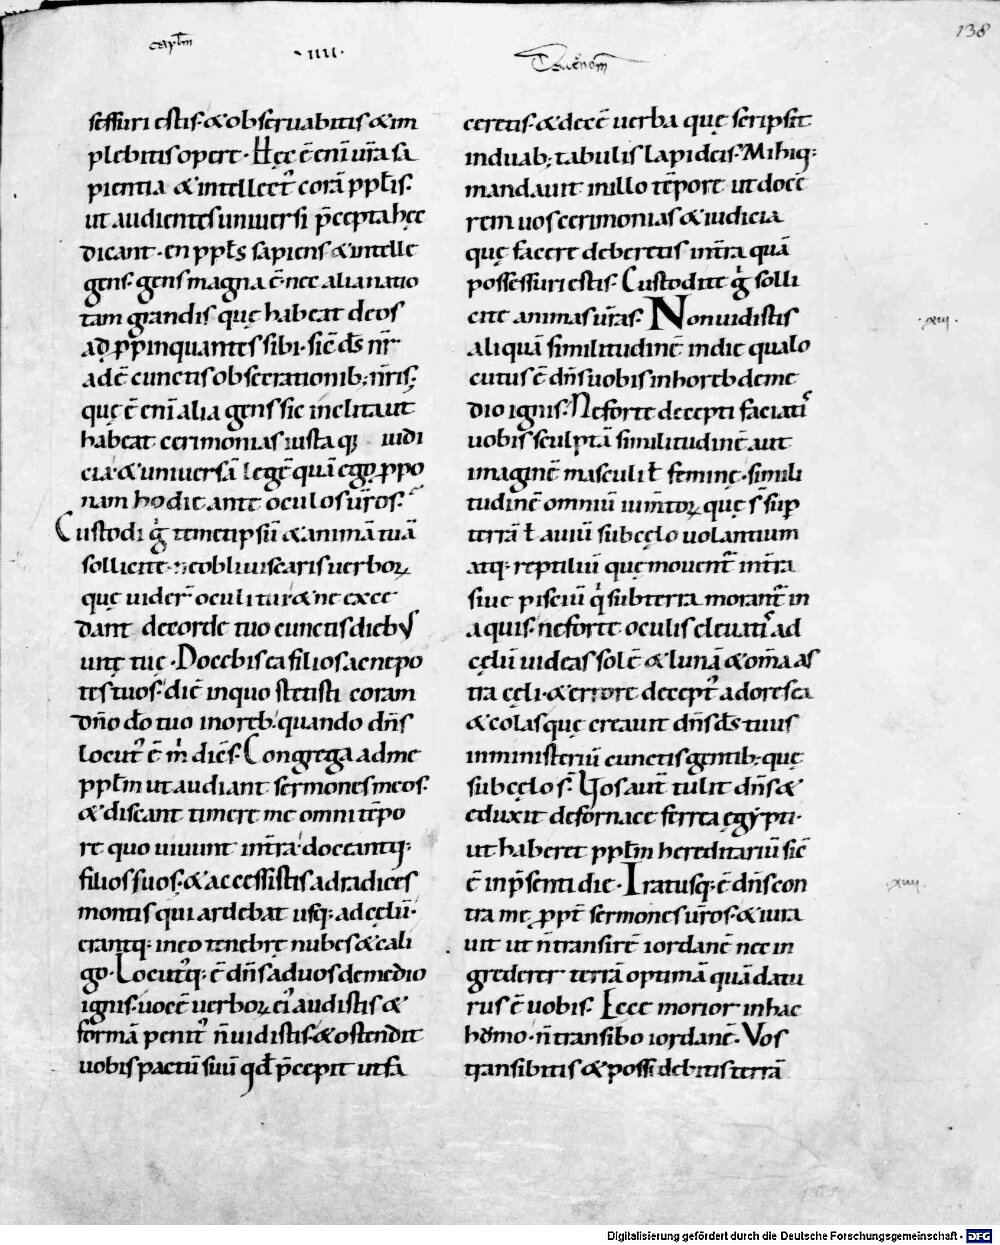 138
caplm
·IIII·
Deut̄enom̄
sessuri estis· & obseruabitis & im
plebitis opere· Hęc ē enī ur̄a sa
pientia & intellect᾽ corā ppl̄is·
ut audientes uniuersi p̄cepta hęc
dicant· en ppl̄s sapiens & intelle
gens· gens magna ē· nec alia natio
tam grandis· quę habeat deos
ad ꝓpinquantes sibi· sic̄ d̄s nr̄
adē cunctis obsecrationib; nr̄is;
quę ē enī alia gens sic inclita ut
habeat cerimonias iusta q; iudi
cia· & uniuersā legē quā ego ꝓpo
nam hodie ante oculos ur̄os·
Custodi g̊ temetipsū & animā tuā
sollicite· ne obliuiscaris uerboꝝ
quę uider̄ oculi tui & ne exce
dant de corde tuo cunctis dieb;
uitę tuę· Docebis ea filios ac nepo
tes tuos· diē in quo stetisti coram
dn̄o d̄o tuo in oreb· quando dn̄s
locut᾽ ē m̊ dicēs· Congrega ad me
ppl̄m ut audiant sermones meos·
& discant timere me omni tēpo
re quo uiuunt in tr̄a· doceantq;
filios suos· & accessistis ad radices
montis qui ardebat usq; ad cęlū·
erantq; in eo tenebrę nubes & cali
go· Locut᾽q; ē dn̄s ad uos de medio
ignis· uocē uerboꝝ ei᾽ audistis &
formā penit᾽ n̄ uidistis· & ostendit
uobis pactū suū qd̄ p̄cepit ut fa
ceretis· & decē uerba quę scripsit
in duab; tabulis lapideis· Mihiq;
mandauit in illo tēpore ut docē
rem uos cerimonias & iudicia
quę facere deberetis in tr̄a quā
possessuri estis· Custodite g̊ solli
cite animas ur̄as· Non uidistis
·xiii·
aliquā similitudinē in die qua lo
cutus ē dn̄s uobis in horeb de me
dio ignis· Ne forte decepti faciati᾽
uobis sculptā similitudinē aut
imaginē masculi ł feminę· simili
tudinē omniū iumtoꝝ quę s̄ sup̄
terrā ł auiū sub cęlo uolantium
atq; reptiliū quę mouent᾽ in tr̄a
siue pisciū q̊ sub terra morant᾽ in
aquis· ne forte oculis eleuati᾽ ad
cęlū uideas solē & lunā & om̄a as
tra cęli· & errore decept᾽ adores ea
& colas quę creauit dn̄s d̄s tuus
in ministeriū cunctis gentib; quę
sub cęlo s̄· Uos aut̄ tulit dn̄s &
eduxit de fornace ferrea ęgypti·
ut haberet ppl̄m hereditariū sic̄
ē in p̄senti die· Iratusq; ē dn̄s con
·xiiii·
tra me ꝓpt̄ sermones ur̄os· & iura
uit ut n̄ transirē iordanē nec in
grederer terrā optimā quā datu
rus ē uobis· Ecce morior in hac
hūmo· n̄ transibo iordanē· Vos
transibitis & possidebitis terrā
Digitalisierung gefördert durch die Deutsche Forschungsgemeinschaft - DFG